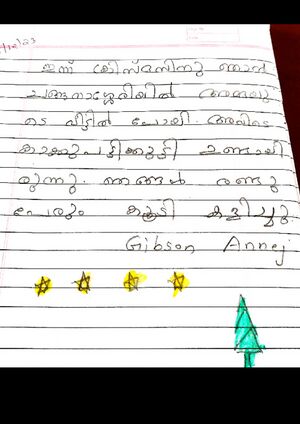 ഇന്ന് ക്രിസ്മസിനു ഞാൻ
ചങ്ങനാശ്ശേരിയിൽ അമ്മയു
ടെ വീട്ടിൽ പോയി. അവിടെ
ഒരു പട്ടിക്കുട്ടി ഉണ്ടായി
രുന്നു. ഞങ്ങൾ രണ്ടു
പേരും കൂടി കളിച്ചു.
Gibson Annej